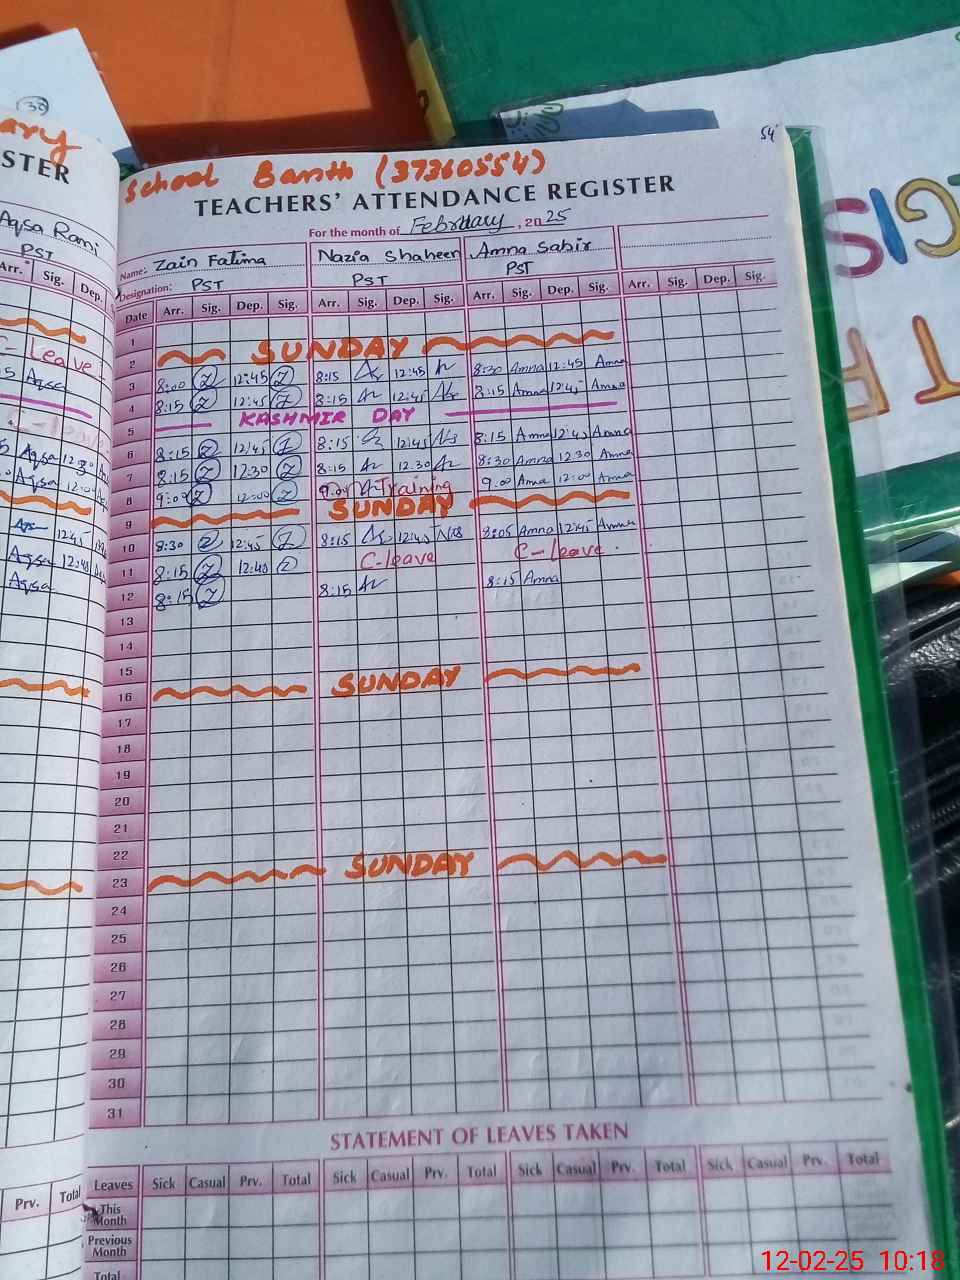 ary
STER
Aqsa Rani
PST
Arr. Sig. Dep.
C- Leave
Aqsa
Aqsa 12:30
Aqsa 12:0
12:45
Aqsa 12:40
Aqsa
Prv. Total
54
School Banth (37360554)
TEACHERS' ATTENDANCE REGISTER
For the month of February, 2025
Name: Zain Fatima Nazia Shaheen Amna Sabir
Designation: PST PST PST
Date Arr. Sig. Dep. Sig. Arr. Sig. Dep. Sig. Arr. Sig. Dep. Sig. Arr. Sig. Dep. Sig.
1
2 SUNDAY
3 8:00 Z 12:45 Z 8:15 12:45 8:30 Amna 12:45 Amna
4 8:15 Z 12:45 Z 8:15 12:45 8:15 Amna 12:45 Amna
5 KASHMIR DAY
6 8:15 Z 12:45 Z 8:15 12:45 8:15 Amna 12:45 Amna
7 8:15 Z 12:30 Z 8:15 12.30 8:30 Amna 12 30 Amna
8 9:00 Z 12:00 Z 9.00 Training 9.00 Amna 12:00 Amna
9 SUNDAY
10 8:30 Z 12:45 Z 8:15 12:45 8:05 Amna 12:45 Amna
11 8:15 Z 12:40 Z C-leave C-leave
12 8:15 Z 8:15 8:15 Amna
13
14
15
16 SUNDAY
17
18
19
20
21
22
23 SUNDAY
24
25
26
27
28
29
30
31
STATEMENT OF LEAVES TAKEN
Leaves Sick Casual Prv. Total Sick Casual Prv. Total Sick Casual Prv. Total Sick Casual Prv. Total
This Month
Previous Month
Total
GIS
12-02-25 10:18